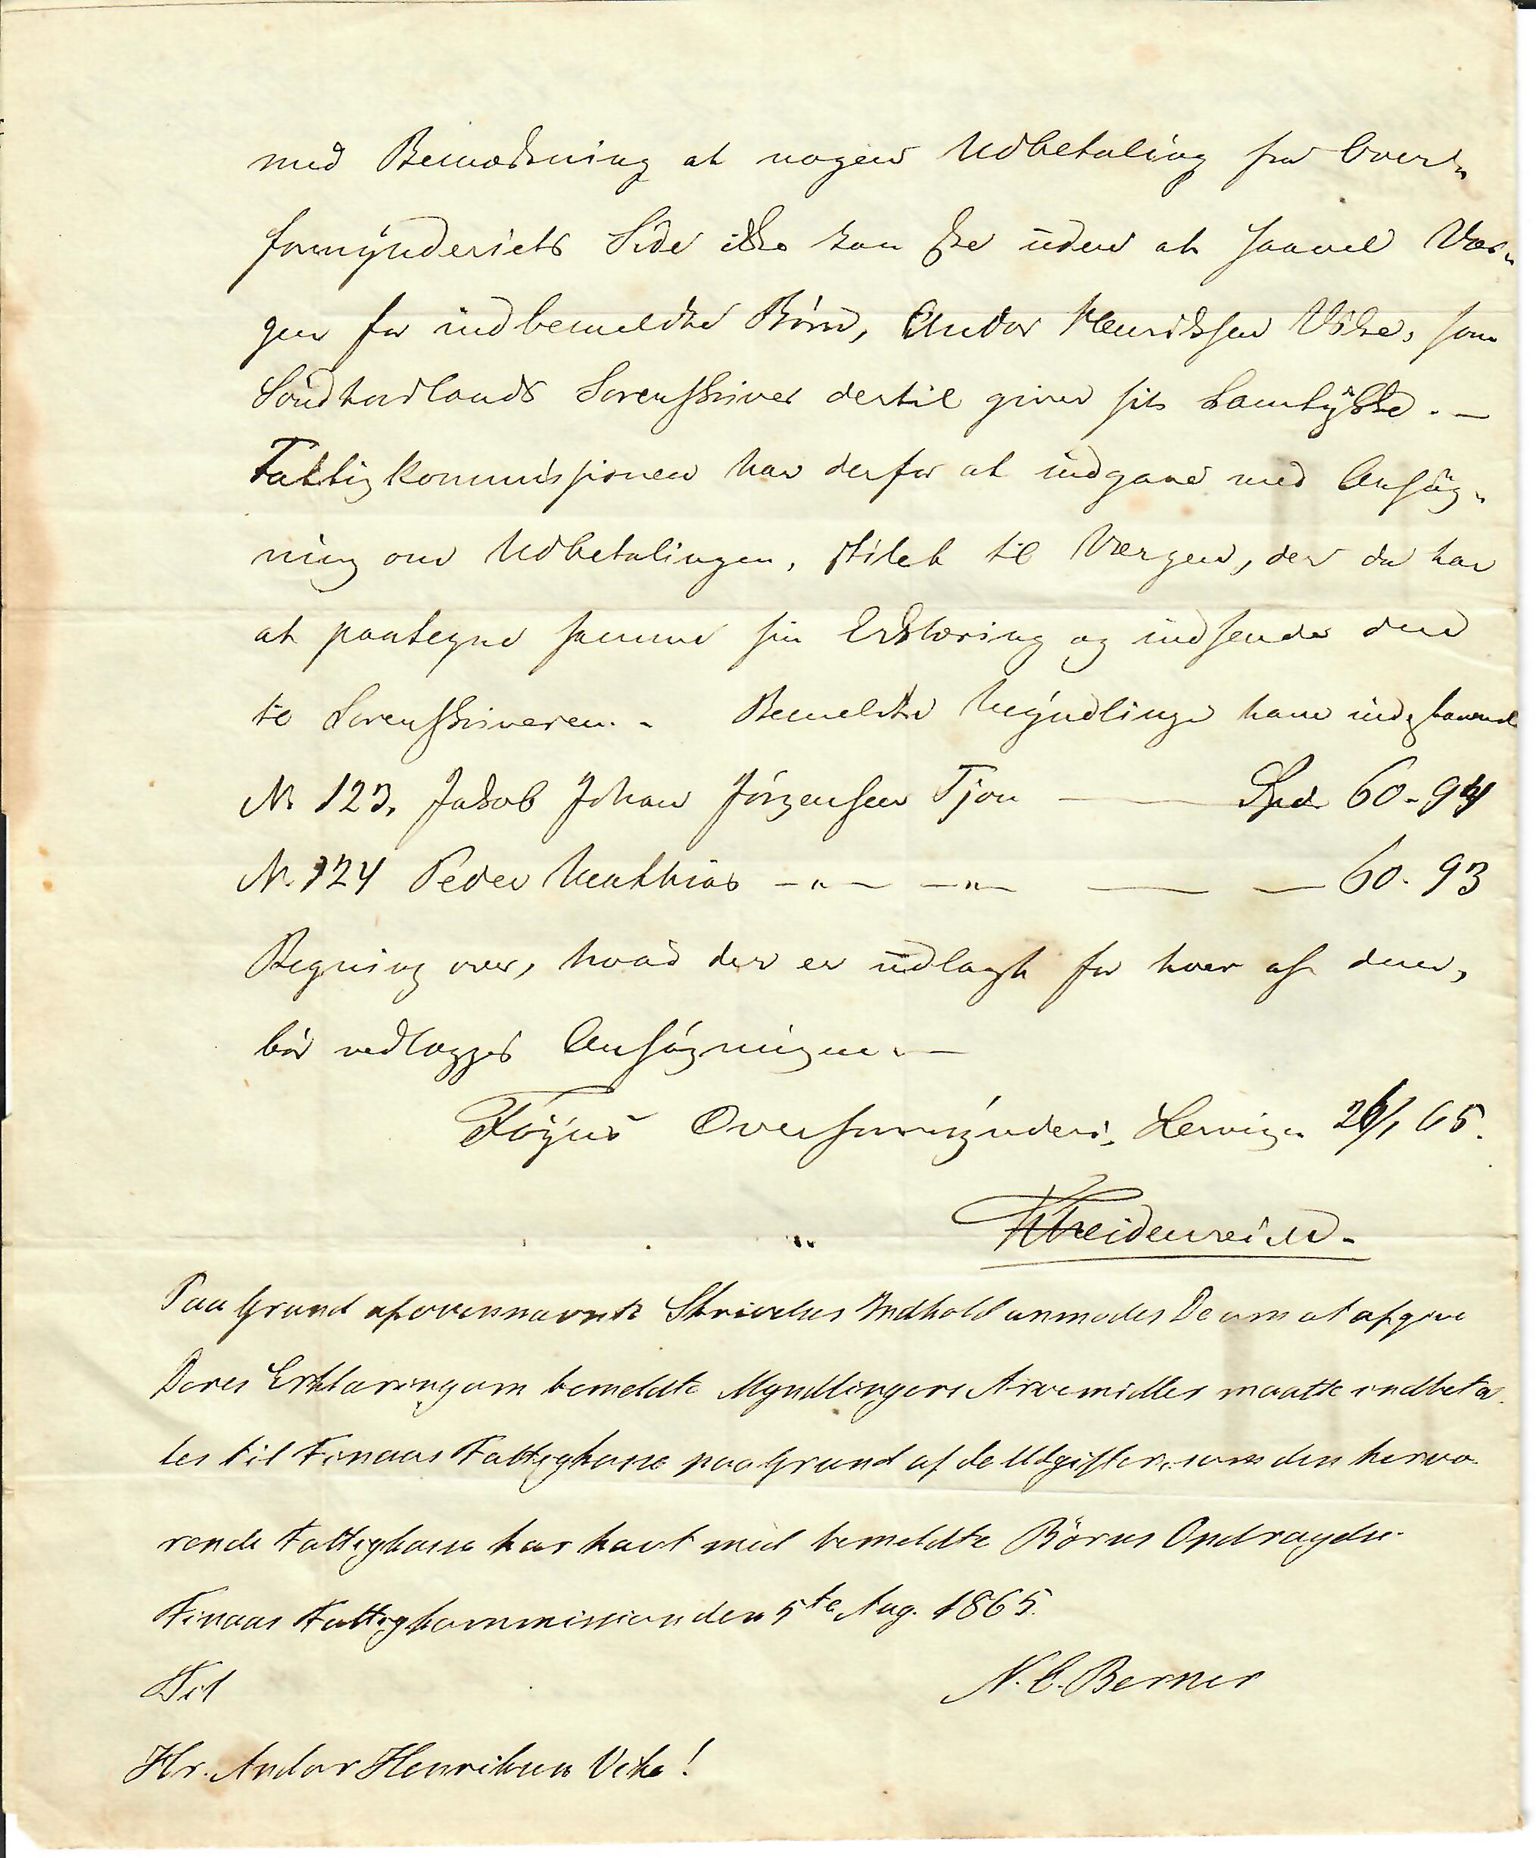 med Bemærkning at nogen Udbetaling fra Over-
formynderiets Side ikke kan ske uden at saavel Vær-
gen for indbemeldte Børn, Andor Henriksen Vike, som
Söndhordlands Sorenskriver dertil giver sit Samtykke. —
Fattigkommissionen har derfor at indgaae med Ansøg-
ning om Udbetalingen, stilet til Værgen, der da har
at paategne samme sin Erklæring og indsende den
til Sorenskriveren. - Bemeldte Myndlinge have indestaaende
N. 123, Jakob Johan Jörgensen Tjon — Spd. 60-94
N. 124 Peder Mathias —"— —"— — — 60-93
Regning over, hvad der er udlagt for hver af dem,
bör vedlægges Ansögningen. —
Föyens Overformynderi, Lervigen 26/1 65.
Heidenreich.
Paa Grund af ovennævnte Skrivelses Indhold anmodes De om at afgive
Deres Erklæring om bemeldte Myndlingers Arvemidler maatte indbeta-
les til Finaas Fattigkasse paa Grund af de Udgifter, som den herva-
rende Fattigkasse har havt med bemeldte Börns Opdragelse.
Finaas Fattigkommission den 5te Aug. 1865.
Til N. C. Berner
Hr. Andor Henriksen Vike!